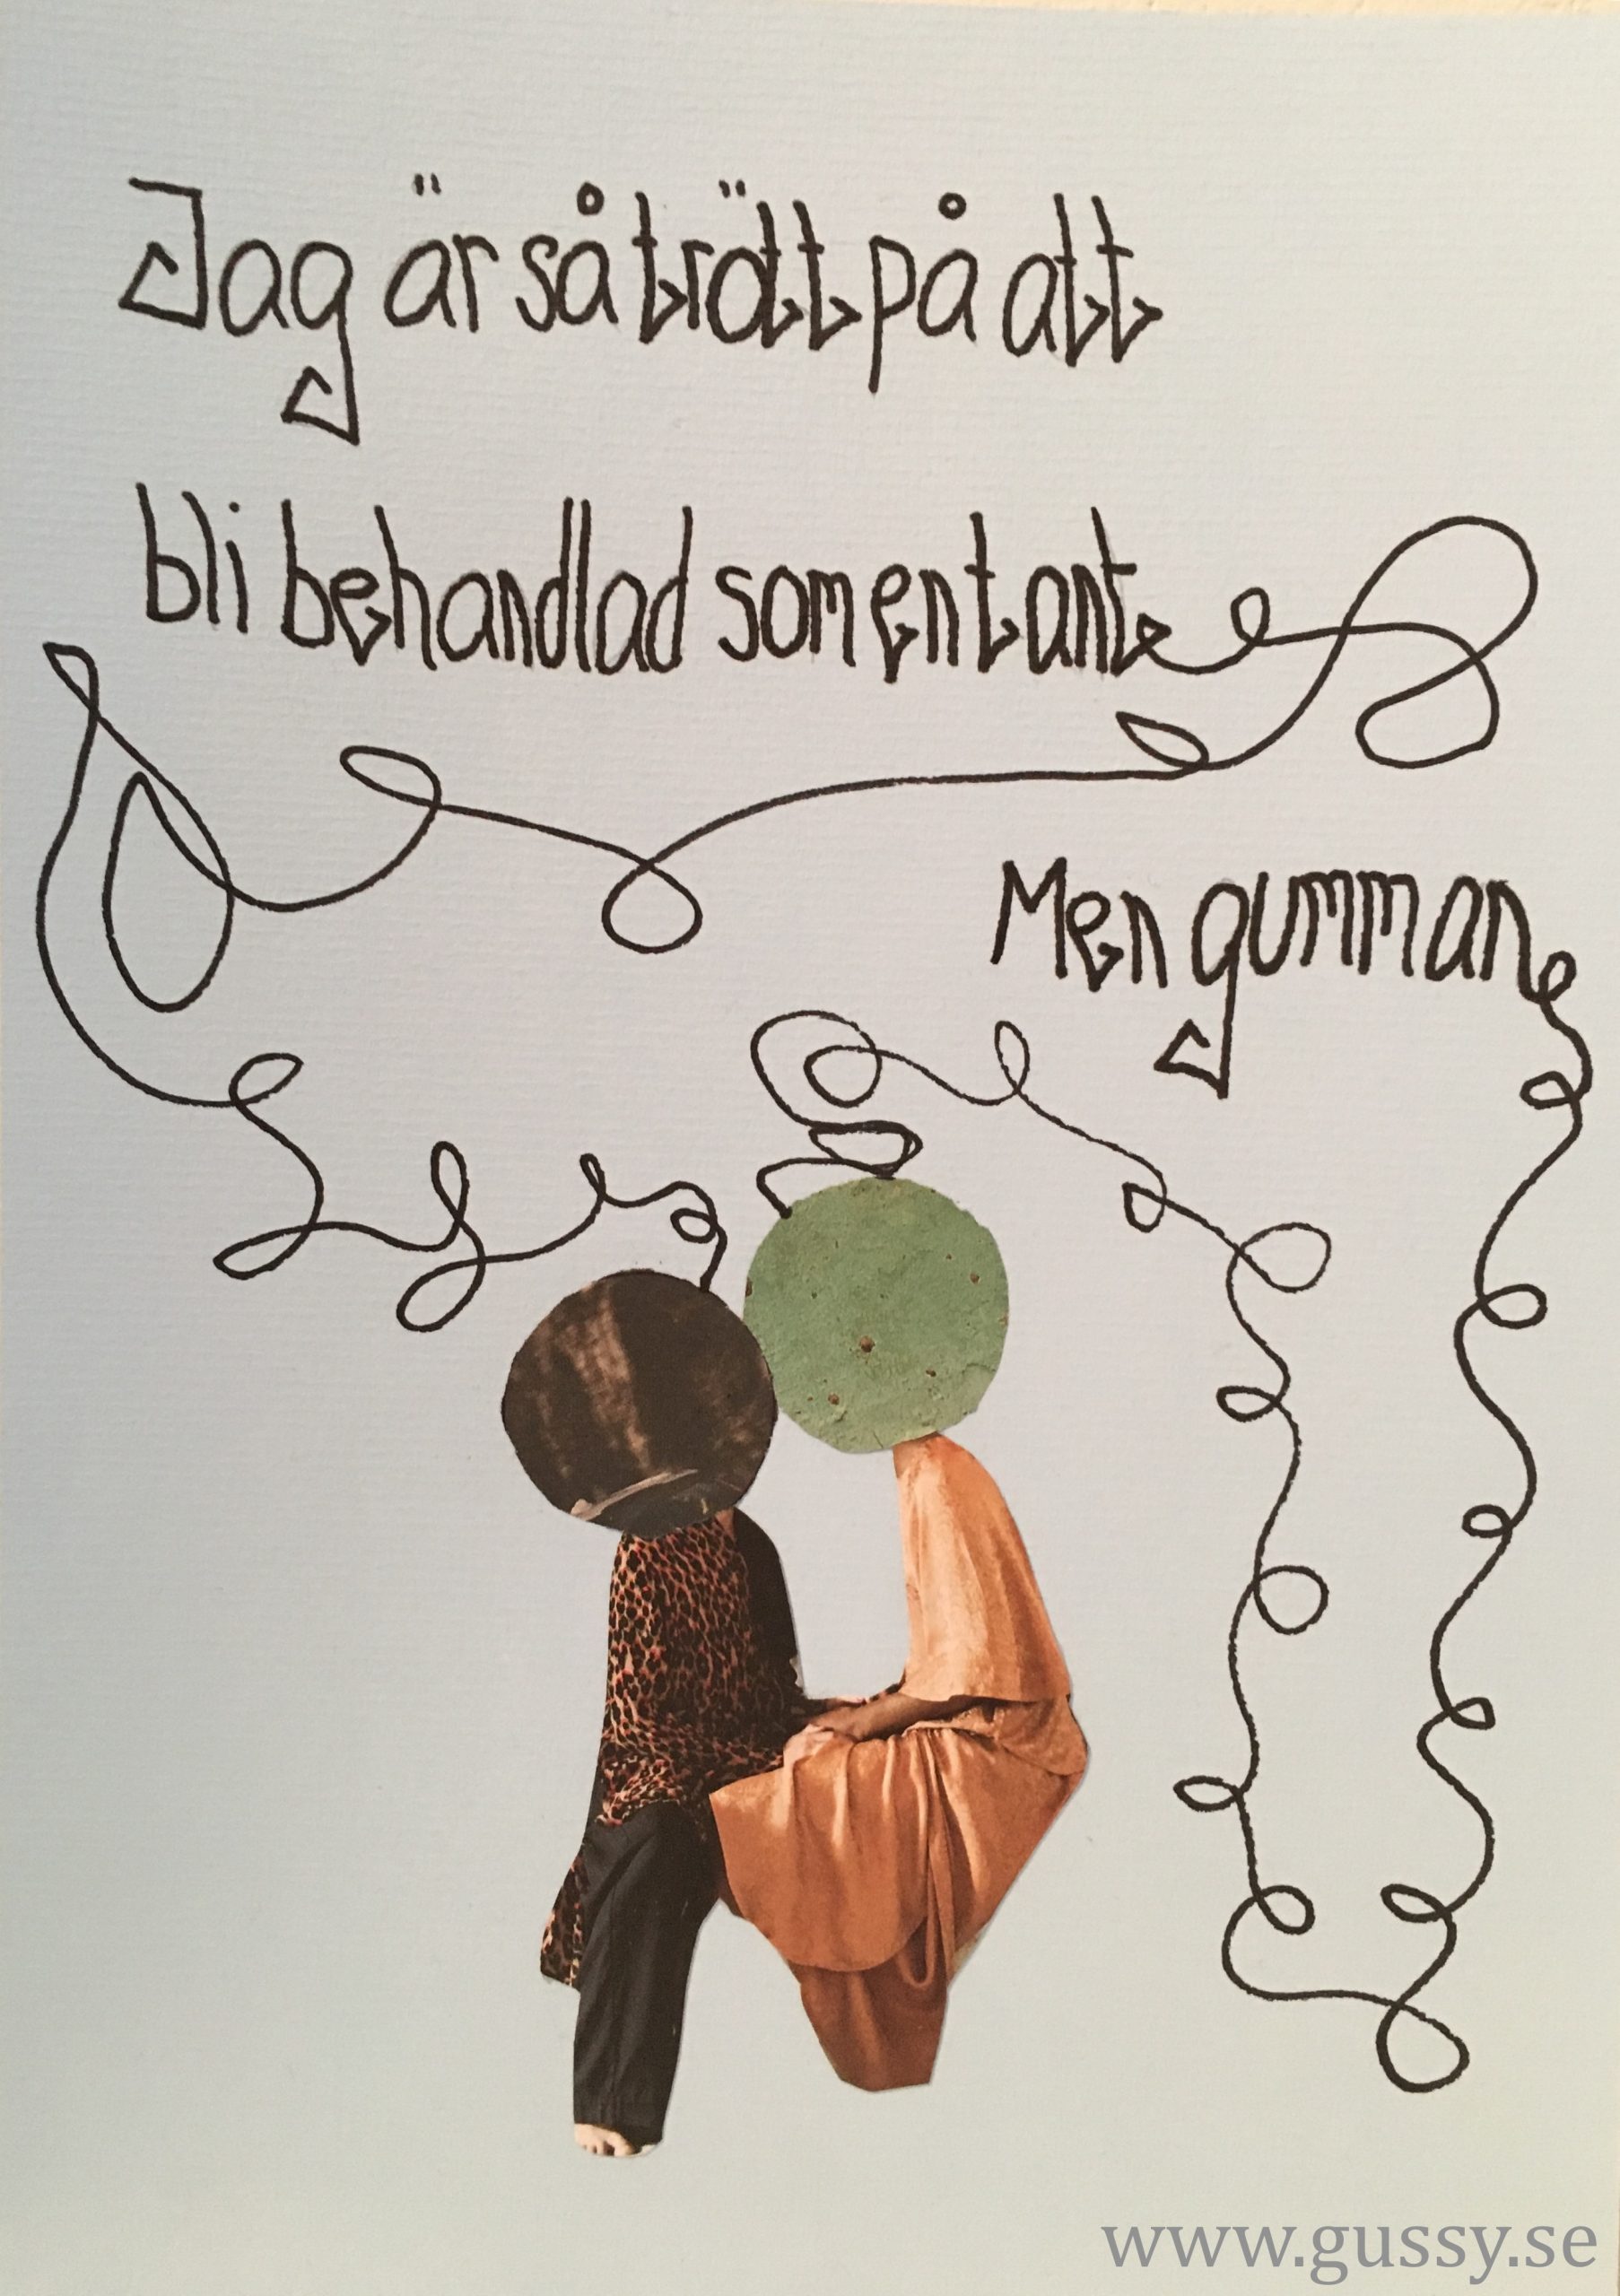 Jag är så trött på att
bli behandlad som en tant
Men gumman
www.gussy.se